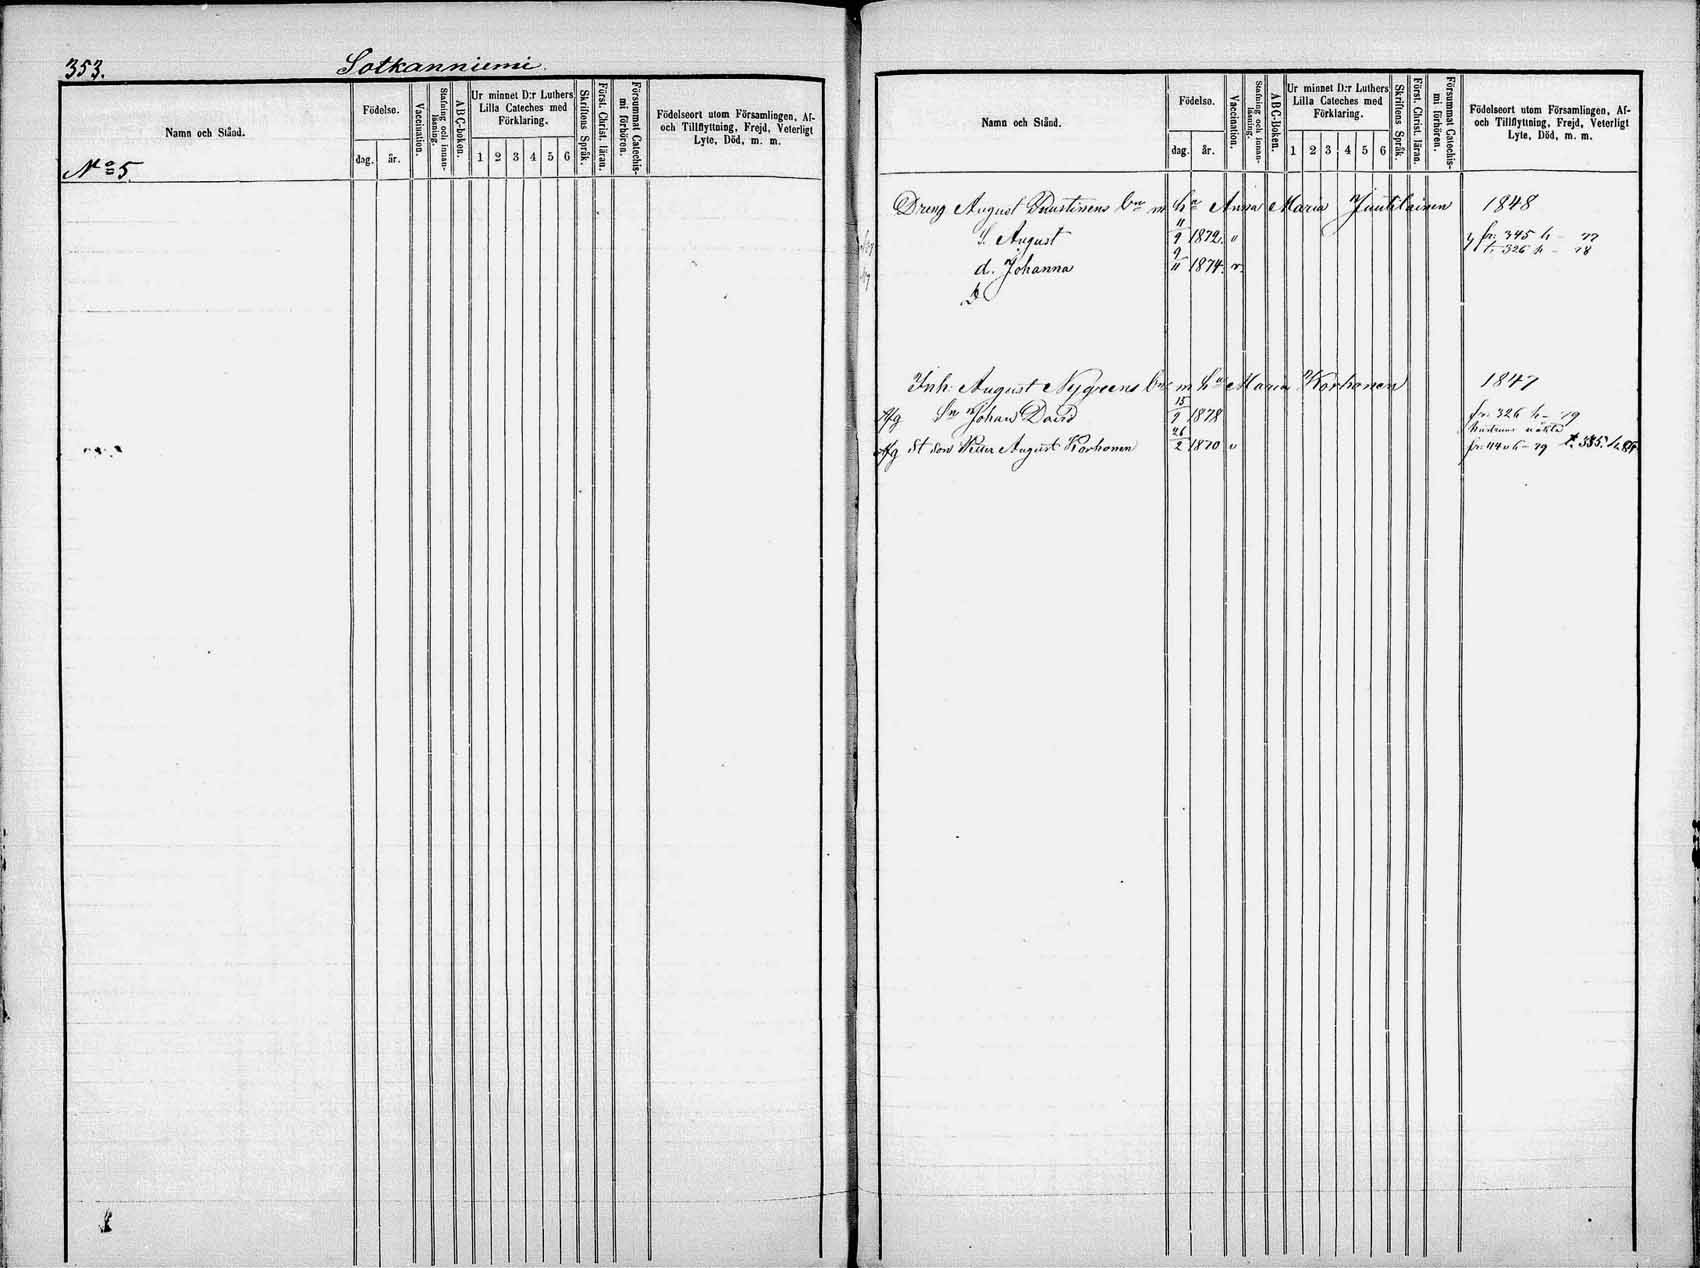 353. Sotkanniemi.
Namn och Stånd.
Födelse.
dag. år.
Vaccination.
Stafning och innanläsning.
ABC-boken.
Ur minnet D:r Luthers
Lilla Cateches med
Förklaring.
1 2 3 4 5 6
Skriftens Språk.
Först. Christ. läran.
Försummat Catechismi förhören.
Födelseort utom Församlingen, Af-
och Tillflyttning, Frejd, Veterligt
Lyte, Död, m. m.
No 5.
Namn och Stånd.
Födelse.
dag. år.
Vaccination.
Stafning och innanläsning.
ABC-Boken.
Ur minnet D:r Luthers
Lilla Cateches med
Förklaring.
1 2 3 4 5 6
Skriftens Språk.
Först. Christ. läran.
Försummat Catechismi förhören.
Födelseort utom Församlingen, Af-
och Tillflyttning, Frejd, Veterligt
Lyte, Död, m. m.
Dreng August m hu Anna Maria Juutilainen 1848
S. August 11/9 1872. " fr. 345 h - 77
t. 326 h - 78
d. Johanna 9/11 1874. v.
D
Inh. August Nygrens m hu Maria Korhonen 1847
Afg Sn Johan David 15/9 1878 fr. 326 h - 79
Afg St son Petter August Korhonen 26/2 1870 v fr. 440 h - 79 t. 385. h. 84